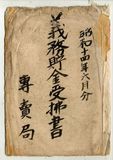 昭和十四年六月分
義務貯金受拂書
專賣局